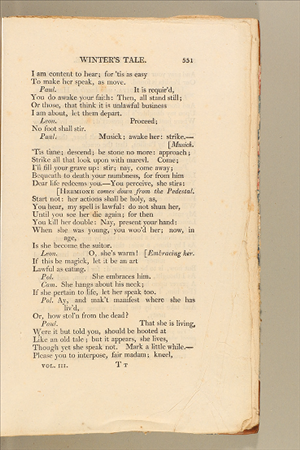 WINTER'S TALE. 551
I am content to hear; for 'tis as easy
To make her speak, as move.
Paul. It is requir'd,
You do awake your faith: Then, all stand still;
Or those, that think it is unlawful business
I am about, let them depart.
Leon. Proceed;
No foot shall stir.
Paul. Musick; awake her: strike.—
[Musick.
'Tis time; descend; be stone no more: approach;
Strike all that look upon with marvel. Come;
I'll fill your grave up: stir; nay, come away;
Bequeath to death your numbness, for from him
Dear life redeems you.—You perceive, she stirs:
[HERMIONE comes down from the Pedestal.
Start not: her actions shall be holy, as,
You hear, my spell is lawful: do not shun her,
Until you see her die again; for then
You kill her double: Nay, present your hand:
When she was young, you woo'd her; now, in
age,
Is she become the suitor.
Leon. O, she's warm! [Embracing her.
If this be magick, let it be an art
Lawful as eating.
Pol. She embraces him.
Cam. She hangs about his neck;
If she pertain to life, let her speak too.
Pol. Ay, and mak't manifest where she has
liv'd,
Or, how stol'n from the dead?
Paul. That she is living,
Were it but told you, should be hooted at
Like an old tale; but it appears, she lives,
Though yet she speak not. Mark a little while.—
Please you to interpose, fair madam; kneel,
VOL. III. T T